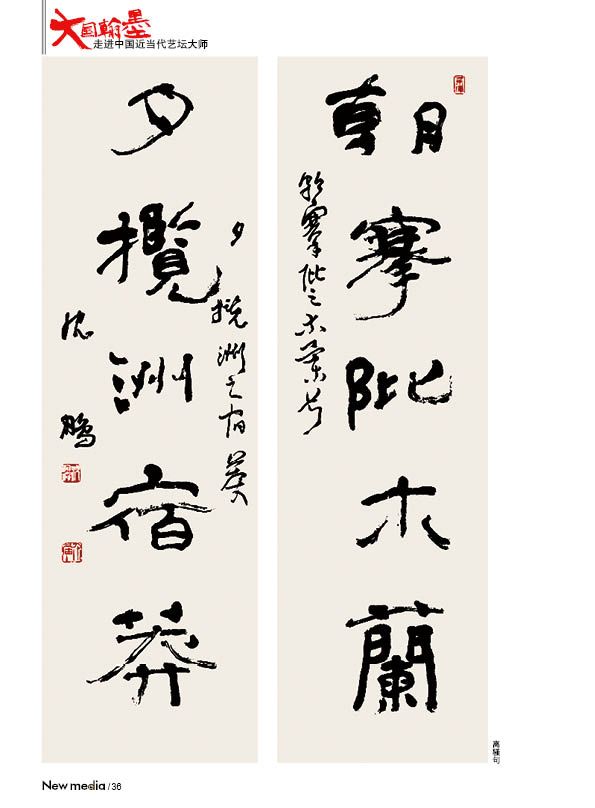 大国翰墨
走进中国近当代艺坛大师
朝搴阰木蘭
朝搴阰之木蘭兮
夕攬洲宿莽
夕揽洲之宿莽
沈鹏
离骚句
New media / 36